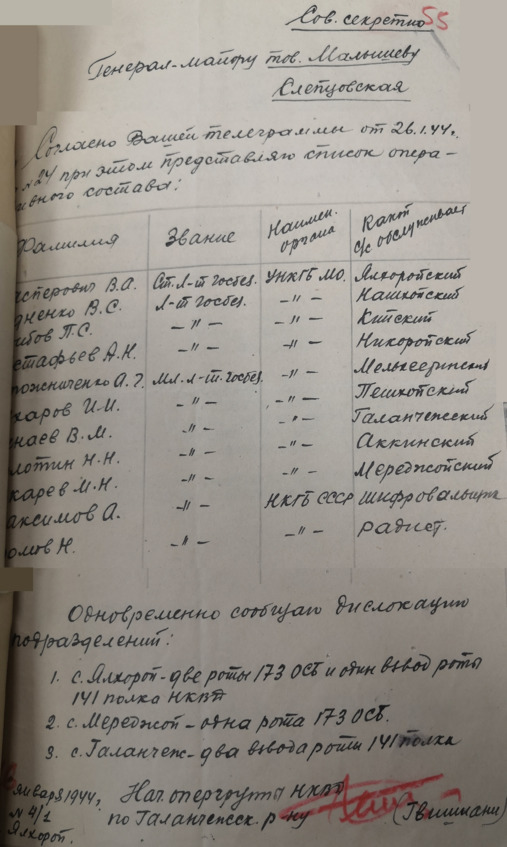 Сов. секретно 55
Генерал-майору тов. Малышеву
Слепцовская
Согласно Вашей телеграммы от 26.1.44г.
№ 24 при этом представляю список опера-
ивного состава:
Фамилия Звание Наимен. органа Какой с/с обслуживает
асперович В.А. Ст. Л-т госбез. УНКГБ МО. Ялхоройский
дненко В.С. Л-т госбез. –"– Нашхойский
ибов П.С. –"– –"– Кийский
стафьев А.Н. –"– –"– Никоройский
пожниченко А.Г. Мл. л-т. госбез. –"– Мелхеевский
каров И.И. –"– –"– Пешхойский
наев В.М. –"– –"– Галанчежский
лотин Н.Н. –"– –"– Аккинский
карев М.Н. –"– –"– Мереджойский
аксимов А. –"– НКГБ СССР шифровальщик
омов Н. –"– –"– радист.
Одновременно сообщаю дислокацию
подразделений:
1. с. Ялхорой – две роты 173 ОСБ и один взвод роты
141 полка НКВД
2. с. Мереджой – одна рота 173 ОСБ.
3. с. Галанчеж – два взвода роты 141 полка
января 1944г. Нач. опергруппы НКВД
№ 4/1 по Галанчежск. р-ну (Гвишиани)
Ялхорой.